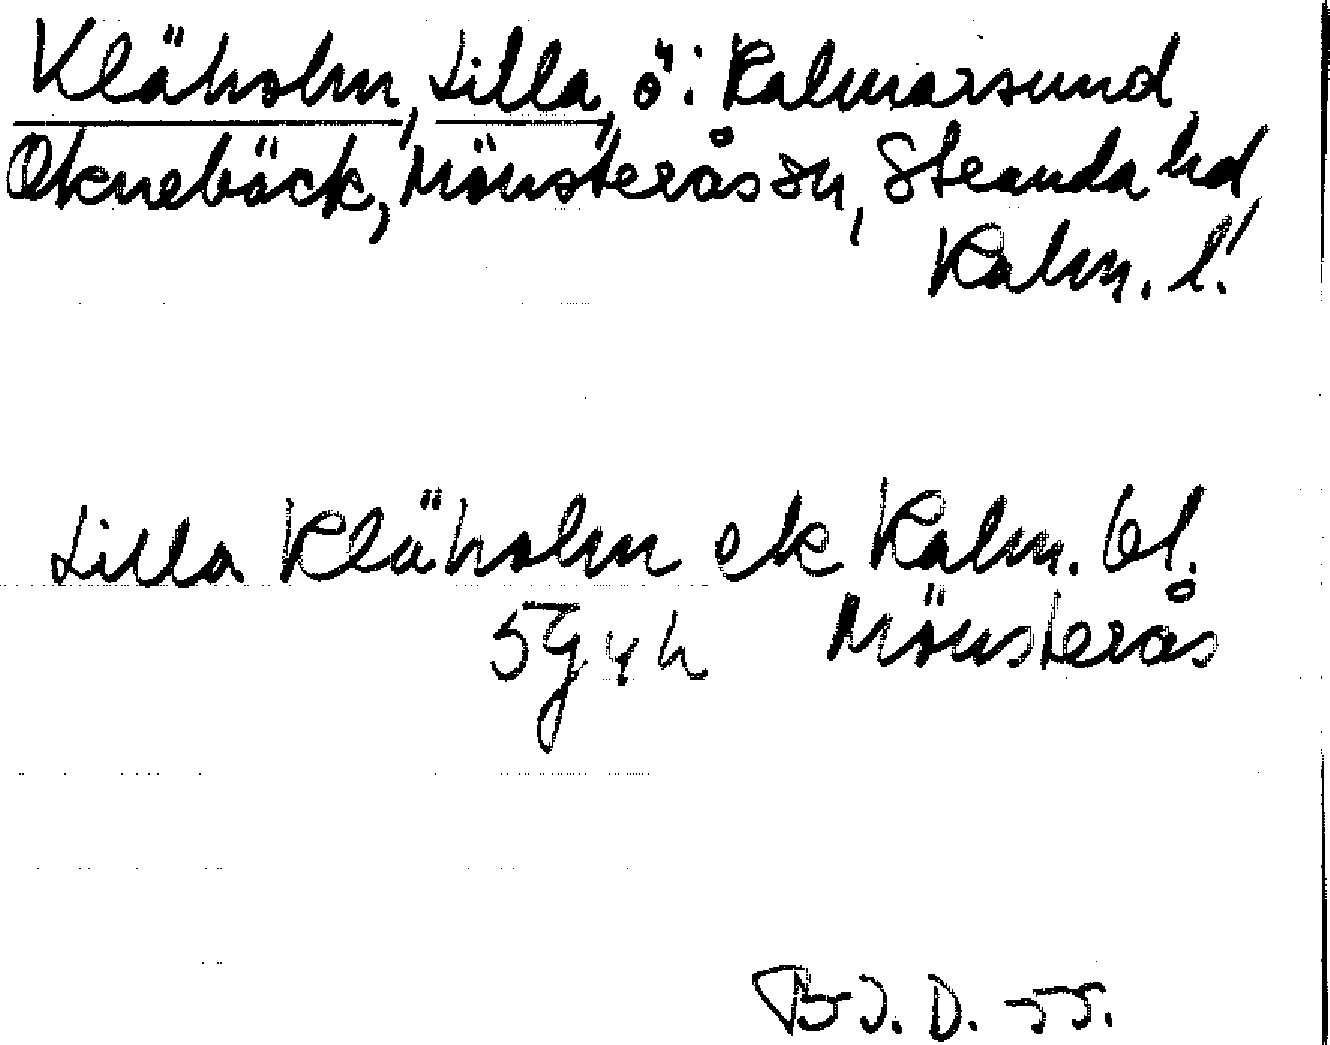 Kläholm, Lilla, ö i Kalmarsund,
Oknebäck, Mönsterås sn, Stranda hd,
Kalm. l.
Lilla Kläholm ek Kalm. bl.
5g4h Mönsterås
B J. D. -55.